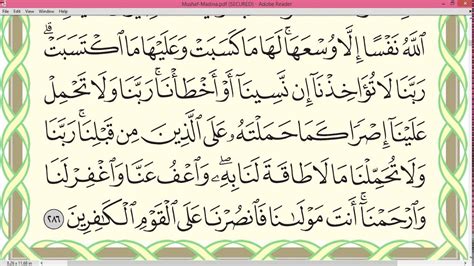 Mushaf-Madina.pdf (SECURED) - Adobe Reader
ٱللَّهُ نَفْسًا إِلَّا وُسْعَهَا ۚ لَهَا مَا كَسَبَتْ وَعَلَيْهَا مَا ٱكْتَسَبَتْ ۗ
رَبَّنَا لَا تُؤَاخِذْنَآ إِن نَّسِينَآ أَوْ أَخْطَأْنَا ۚ رَبَّنَا وَلَا تَحْمِلْ
عَلَيْنَآ إِصْرًا كَمَا حَمَلْتَهُۥ عَلَى ٱلَّذِينَ مِن قَبْلِنَا ۚ رَبَّنَا
وَلَا تُحَمِّلْنَا مَا لَا طَاقَةَ لَنَا بِهِۦ ۖ وَٱعْفُ عَنَّا وَٱغْفِرْ لَنَا
وَٱرْحَمْنَآ ۚ أَنتَ مَوْلَىٰنَا فَٱنصُرْنَا عَلَى ٱلْقَوْمِ ٱلْكَٰفِرِينَ ٢٨٦
8.26 x 11.68 in